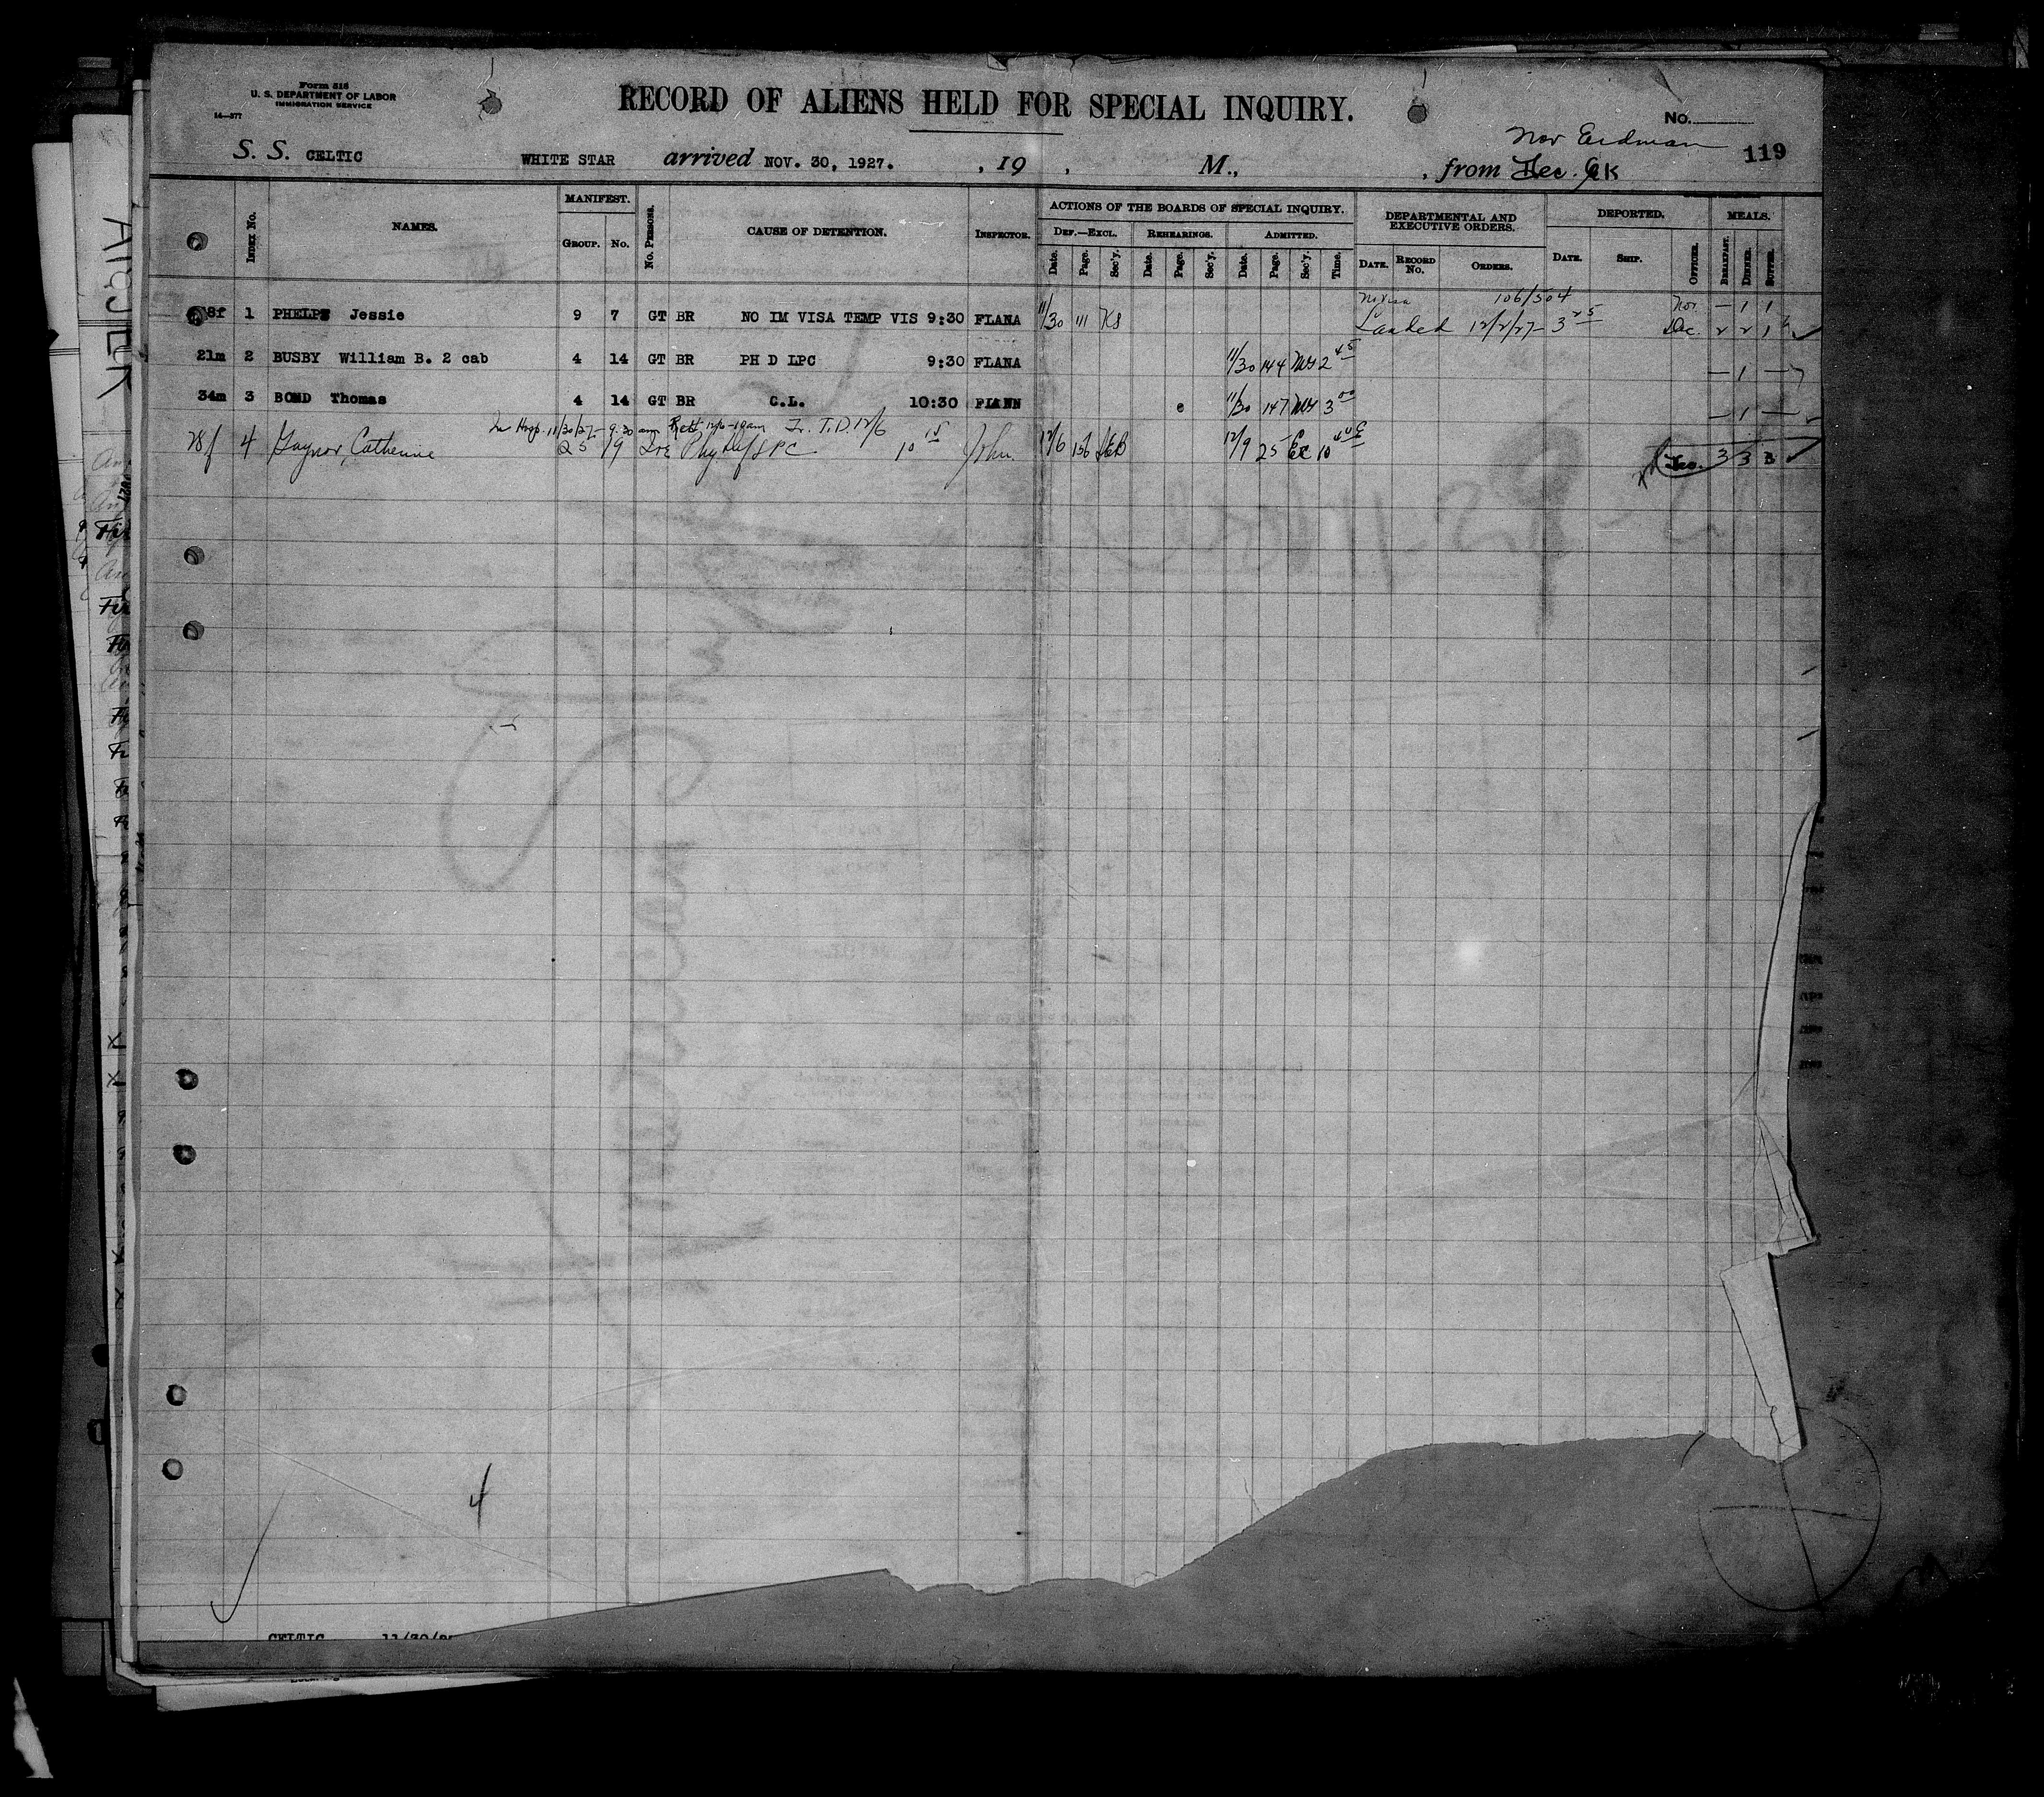 Form 316
U. S. DEPARTMENT OF LABOR
IMMIGRATION SERVICE
14—377
RECORD OF ALIENS HELD FOR SPECIAL INQUIRY.
No.
Nov Erdman
119
S. S. CELTIC WHITE STAR arrived NOV. 30, 1927. , 19 , M., , from Dec.
MANIFEST. ACTIONS OF THE BOARDS OF SPECIAL INQUIRY. DEPARTMENTAL AND EXECUTIVE ORDERS. DEPORTED. MEALS.
INDEX No. NAMES. GROUP. No. No. PERSONS. CAUSE OF DETENTION. INSPECTOR. DEF.—EXCL. REHEARINGS. ADMITTED.
Date. Page. Sec'y. Date. Page. Sec'y. Date. Page. Sec'y. Time. DATE. RECORD No. ORDERS. DATE. SHIP. OFFICER. BREAKFAST. DINNER. SUPPER.
106/504 Nov. — 1 1
8f 1 PHELPS Jessie 9 7 GT BR NO IM VISA TEMP VIS 9:30 FLANA 11/30 111 KS Landed 12/2/27 3 25 Dec. 2 2 1
21m 2 BUSBY William B. 2 cab 4 14 GT BR PH D LPC 9:30 FLANA 11/30 144 2 45 — 1 —
34m 3 BOND Thomas 4 14 GT BR C.L. 10:30 FLANN 11/30 147 3 00 — 1 —
In Hosp. 11/30/27 - 9.30 am Retd 12/6 - 10 am T.D. 12/6
28f 4 Gaynor, Catherine 25 19 Phy Def LPC 10 15 John 12/6 136 12/9 25 10 Dec. 3 3 3
4
CELTIC 11/30/